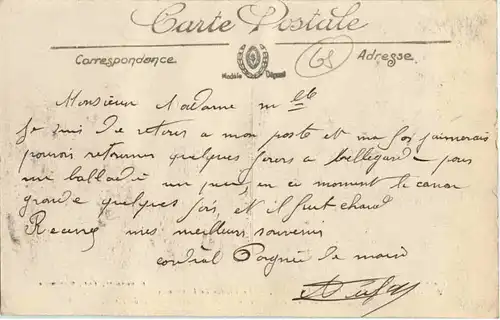 Carte Postale
68
Correspondance
Adresse
Modèle Déposé
Monsieur Madame m lle
Je suis de retour a mon poste et ma foi j'aimerais
pouvoir retourner quelques jours a Bellegarde pour
me ballader un peu, en ce moment le canon
gronde quelques fois, et il fait chaud
Recevez mes meilleurs souvenirs
cordial Poignée de main